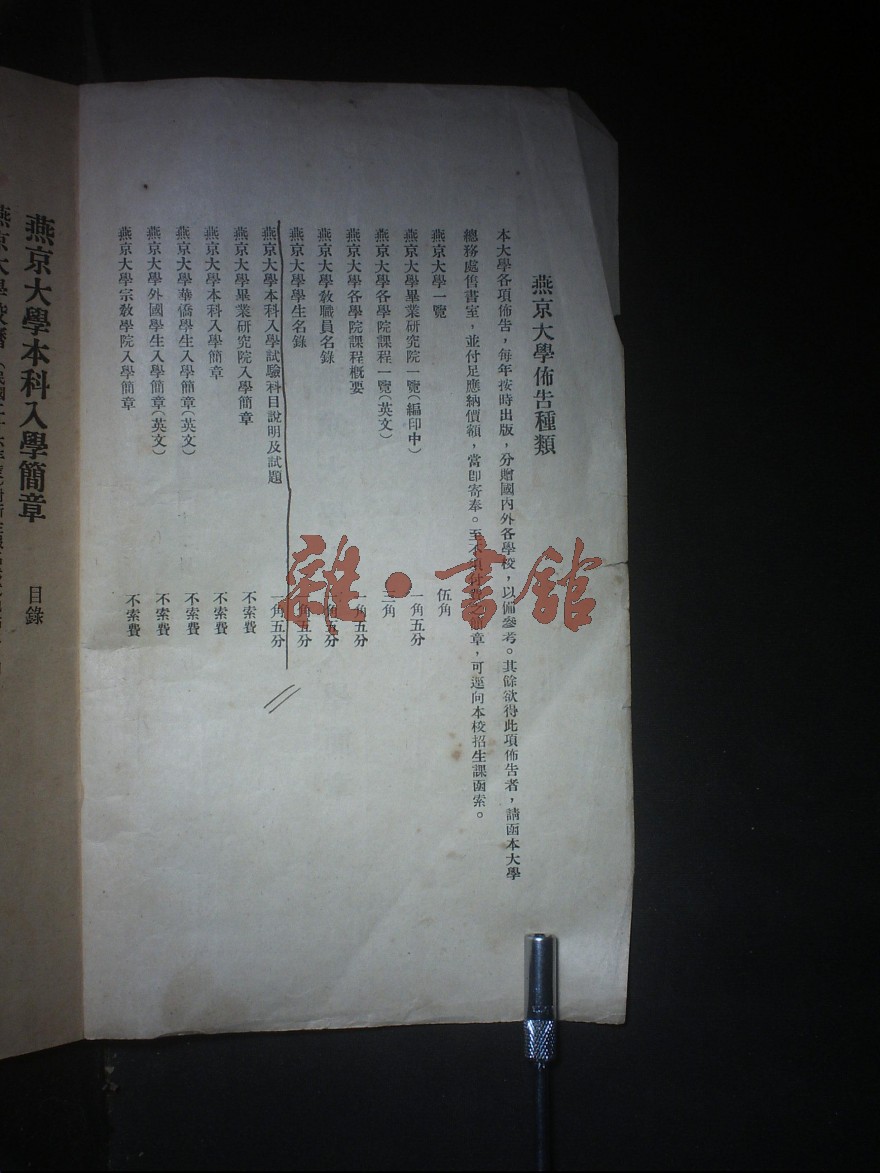 燕京大學佈告種類
本大學各項佈告，每年按時出版，分贈國內外各學校，以備參考。其餘欲得此項佈告者，請函本大學
總務處售書室，並付足應納價額，當卽寄奉。至不簡章，可逕向本校招生課函索。
燕京大學一覽 伍角
燕京大學畢業研究院一覽(編印中) 一角五分
燕京大學各學院課程一覽(英文) 三角
燕京大學各學院課程概要 一角五分
燕京大學敎職員名錄 角五分
燕京大學學生名錄 角五分
燕京大學本科入學試驗科目說明及試題 一角五分
燕京大學畢業研究院入學簡章 不索費
燕京大學本科入學簡章 不索費
燕京大學華僑學生入學簡章(英文) 不索費
燕京大學外國學生入學簡章(英文) 不索費
燕京大學宗敎學院入學簡章 不索費
燕京大學本科入學簡章 目錄
燕京大學校曆
雜·書館